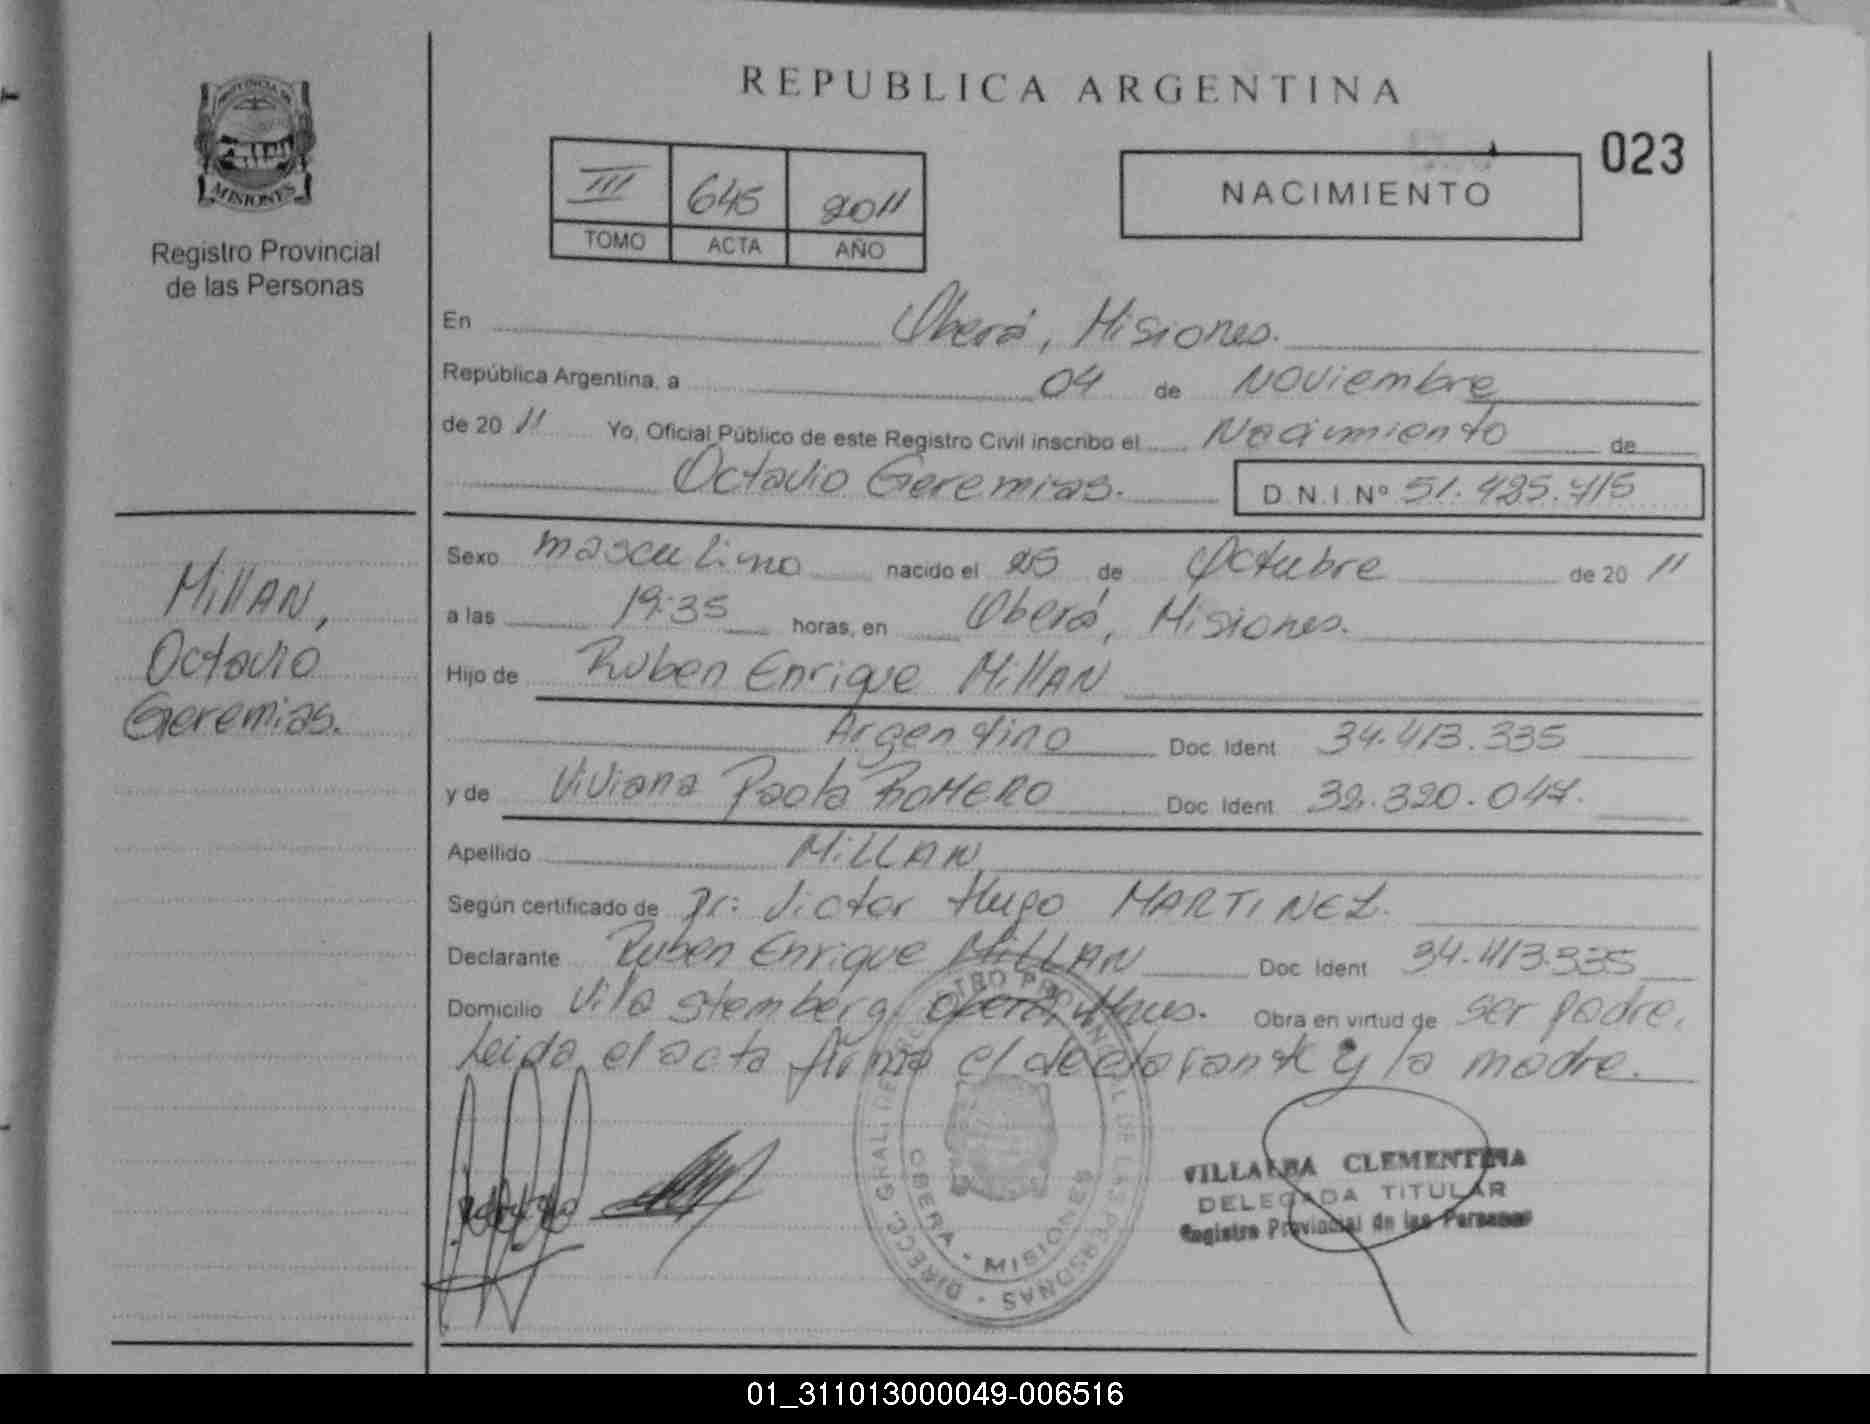 PROVINCIA DE
MISIONES
Registro Provincial
de las Personas
REPUBLICA ARGENTINA
023
III 645 2011
TOMO ACTA AÑO
NACIMIENTO
En Oberá, Misiones.
República Argentina, a 04 de Noviembre
de 2011 Yo, Oficial Público de este Registro Civil inscribo el Nacimiento de
Octavio Geremias. D.N.I Nº 51.425.715
Sexo masculino nacido el 25 de Octubre de 2011
a las 19:35 horas, en Oberá, Misiones.
Hijo de Ruben Enrique Millan
Argentino Doc. Ident 34.413.335
y de Viviana Paola Romero Doc. Ident. 32.320.047.
Apellido Millan
Según certificado de Dr: Victor Hugo MARTINEZ.
Declarante Ruben Enrique Millan Doc. Ident 34.413.335
Domicilio Villa Stemberg Oberá, Mnes. Obra en virtud de ser padre.
Leida el acta firma el declarante y la madre.
Millan,
Octavio
Geremias.
DIRECC. GRAL. DEL REGISTRO PROVINCIAL DE LAS PERSONAS
OBERA - MISIONES
VILLALBA CLEMENTINA
DELEGADA TITULAR
Registro Provincial de las Personas
01_311013000049-006516